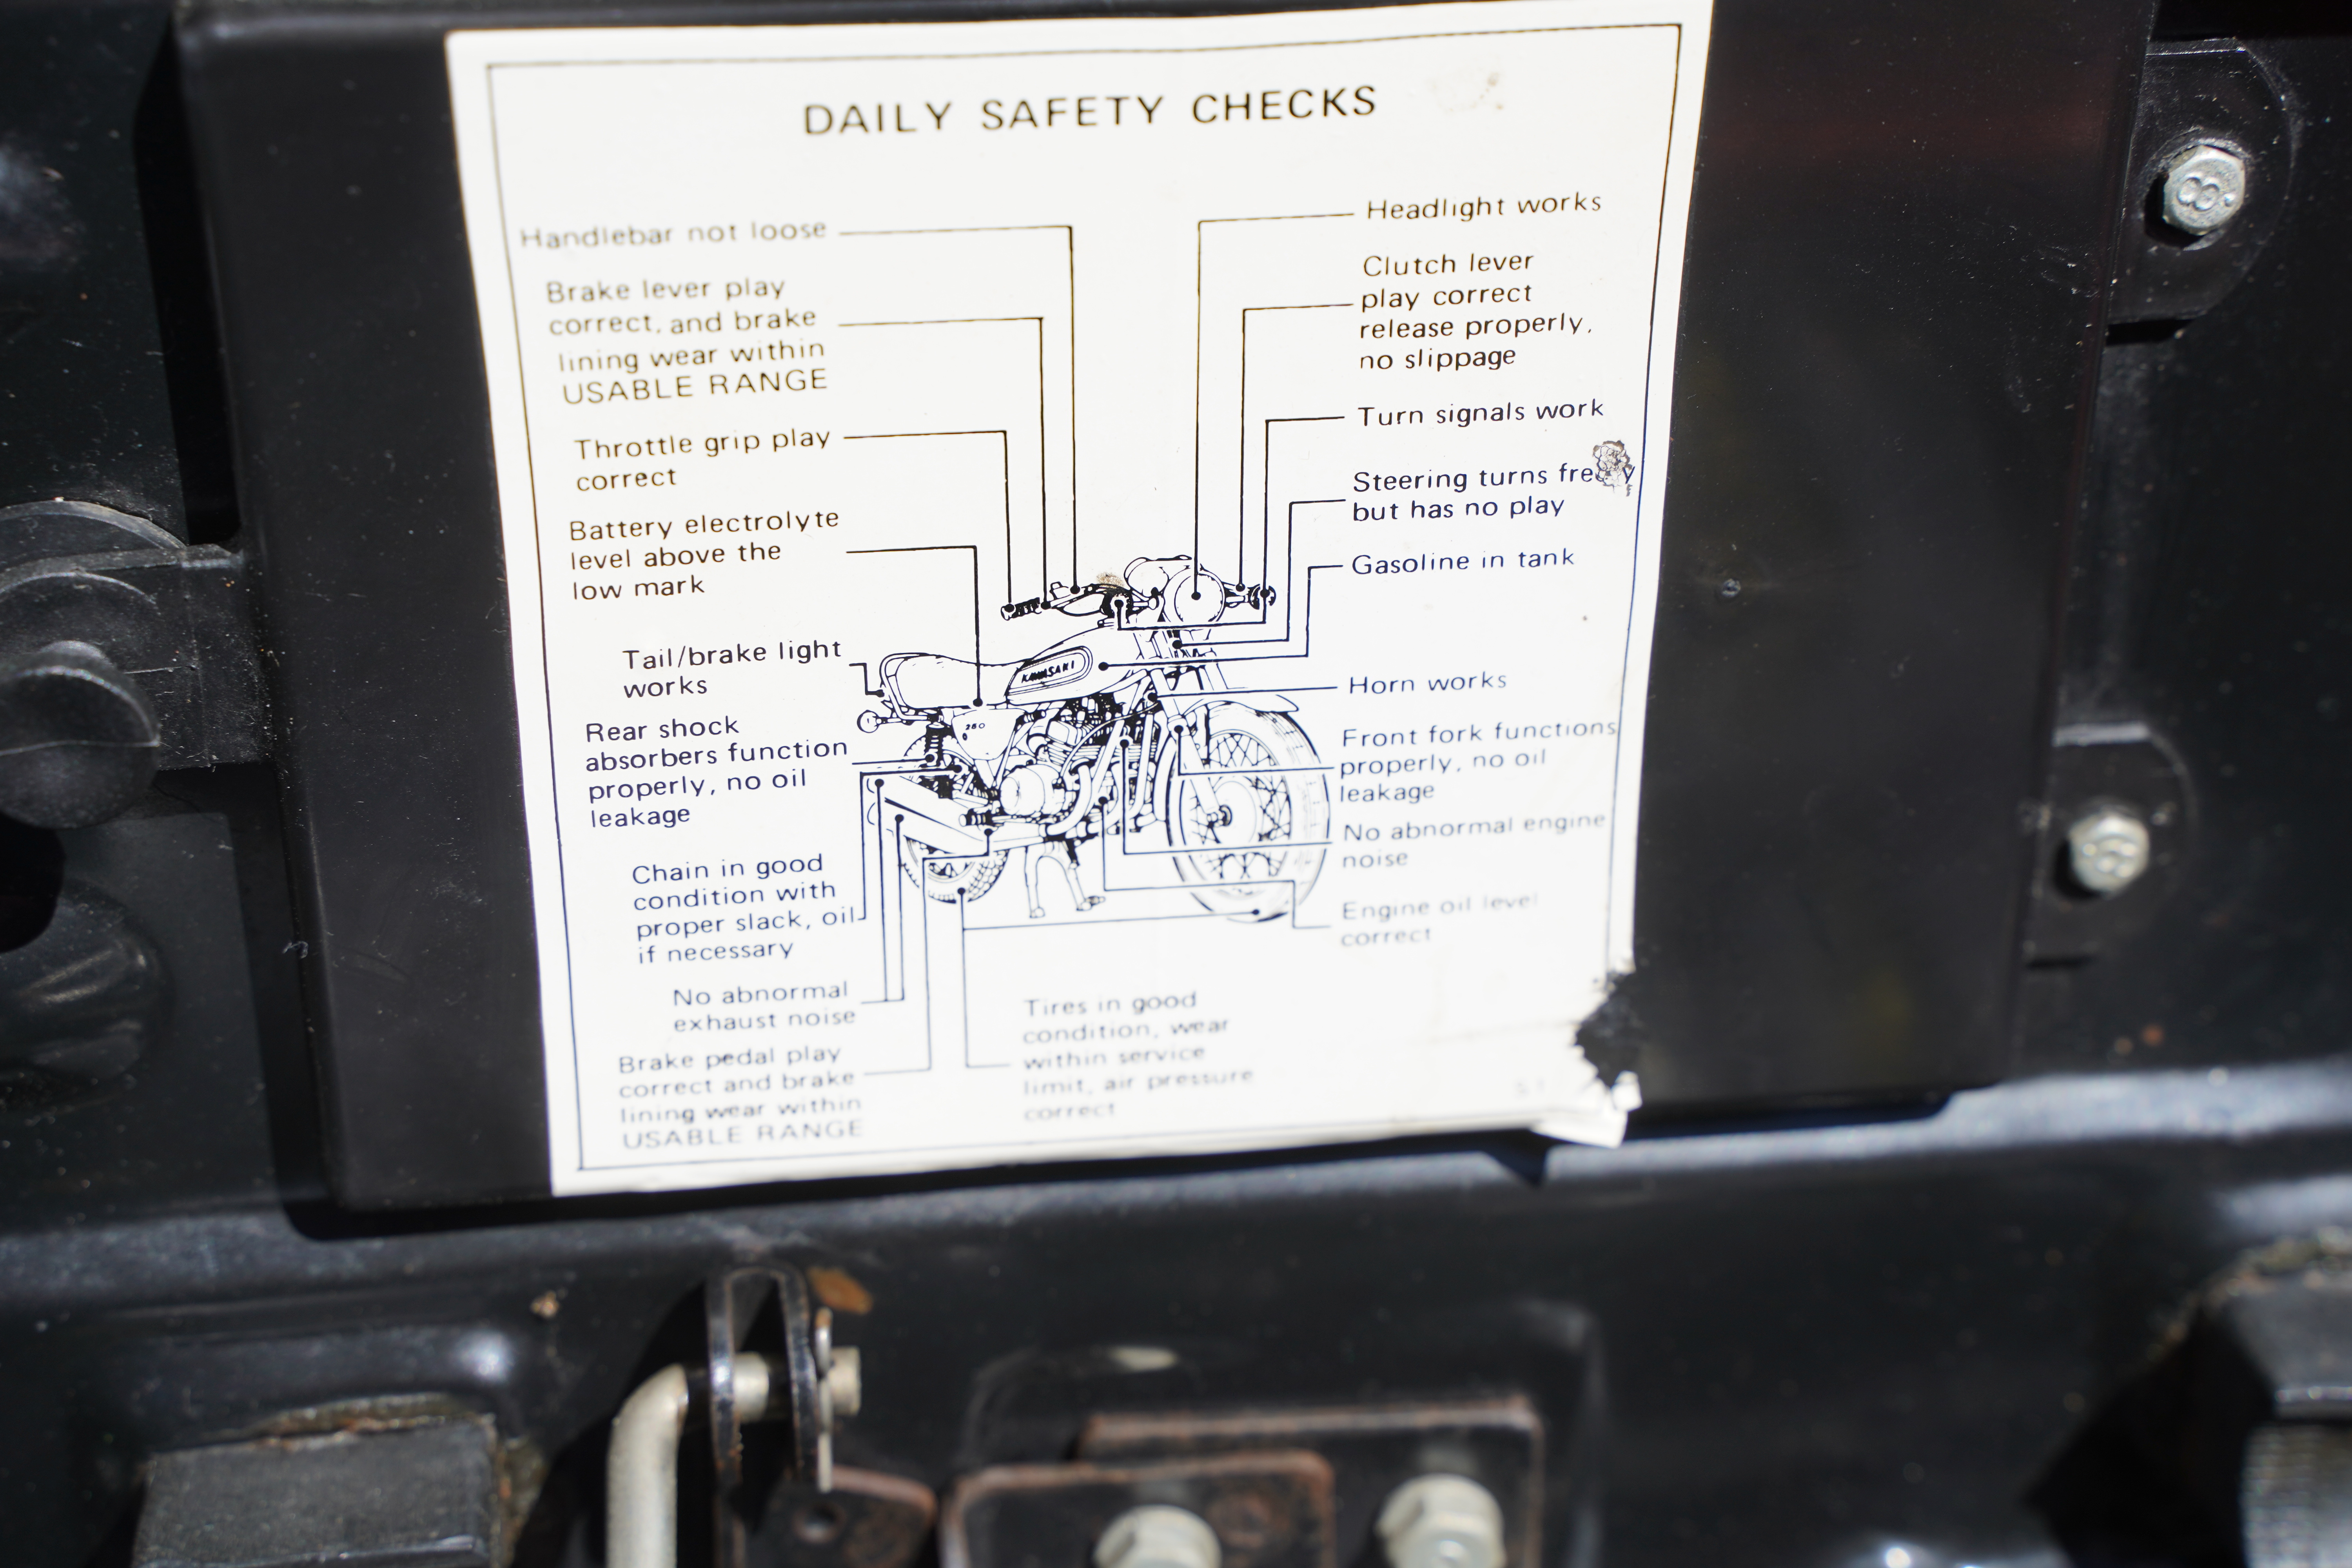 DAILY SAFETY CHECKS
Handlebar not loose
Brake lever play
correct, and brake
lining wear within
USABLE RANGE
Throttle grip play
correct
Battery electrolyte
level above the
low mark
Tail/brake light
works
Rear shock
absorbers function
properly, no oil
leakage
Chain in good
condition with
proper slack, oil
if necessary
No abnormal
exhaust noise
Brake pedal play
correct and brake
lining wear within
USABLE RANGE
Headlight works
Clutch lever
play correct
release properly,
no slippage
Turn signals work
Steering turns freely
but has no play
Gasoline in tank
Horn works
Front fork functions
properly, no oil
leakage
No abnormal engine
noise
Engine oil level
correct
Tires in good
condition, wear
within service
limit, air pressure
correct
KAWASAKI
250
8